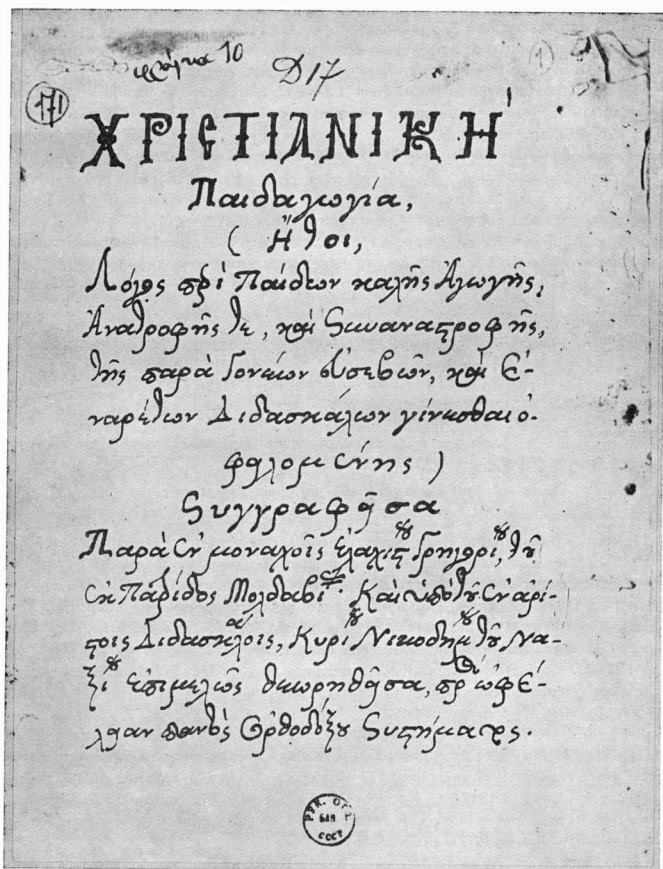 Д 17
171
1
ΧΡΙΣΤΙΑΝΙΚΉ
Παιδαγωγία,
( Ἤτοι,
Λόγος περὶ Παίδων καλῆς Ἀγωγῆς,
Ἀνατροφῆς τε, καὶ Συναναστροφῆς,
τῆς παρὰ Γονέων εὐσεβῶν, καὶ Ἐ-
ναρέτων Διδασκάλων γίνεσθαι ὀ-
φειλομένης )
Συγγραφεῖσα
Παρὰ ἐν μοναχοῖς ἐλαχίστου Γρηγορίου, τοῦ
ἐκ Πατρίδος Μολδαβίας. Καὶ ὑπὸ τοῦ ἐν ἀρί-
στοις Διδασκάλοις, Κυρίου Νικοδήμου τοῦ Να-
ξίου ἐπιμελῶς θεωρηθεῖσα, πρὸς ὠφέ-
λειαν παντὸς Ὀρθοδόξου Συστήματος.
РУК. ОТД
БАН
СССР